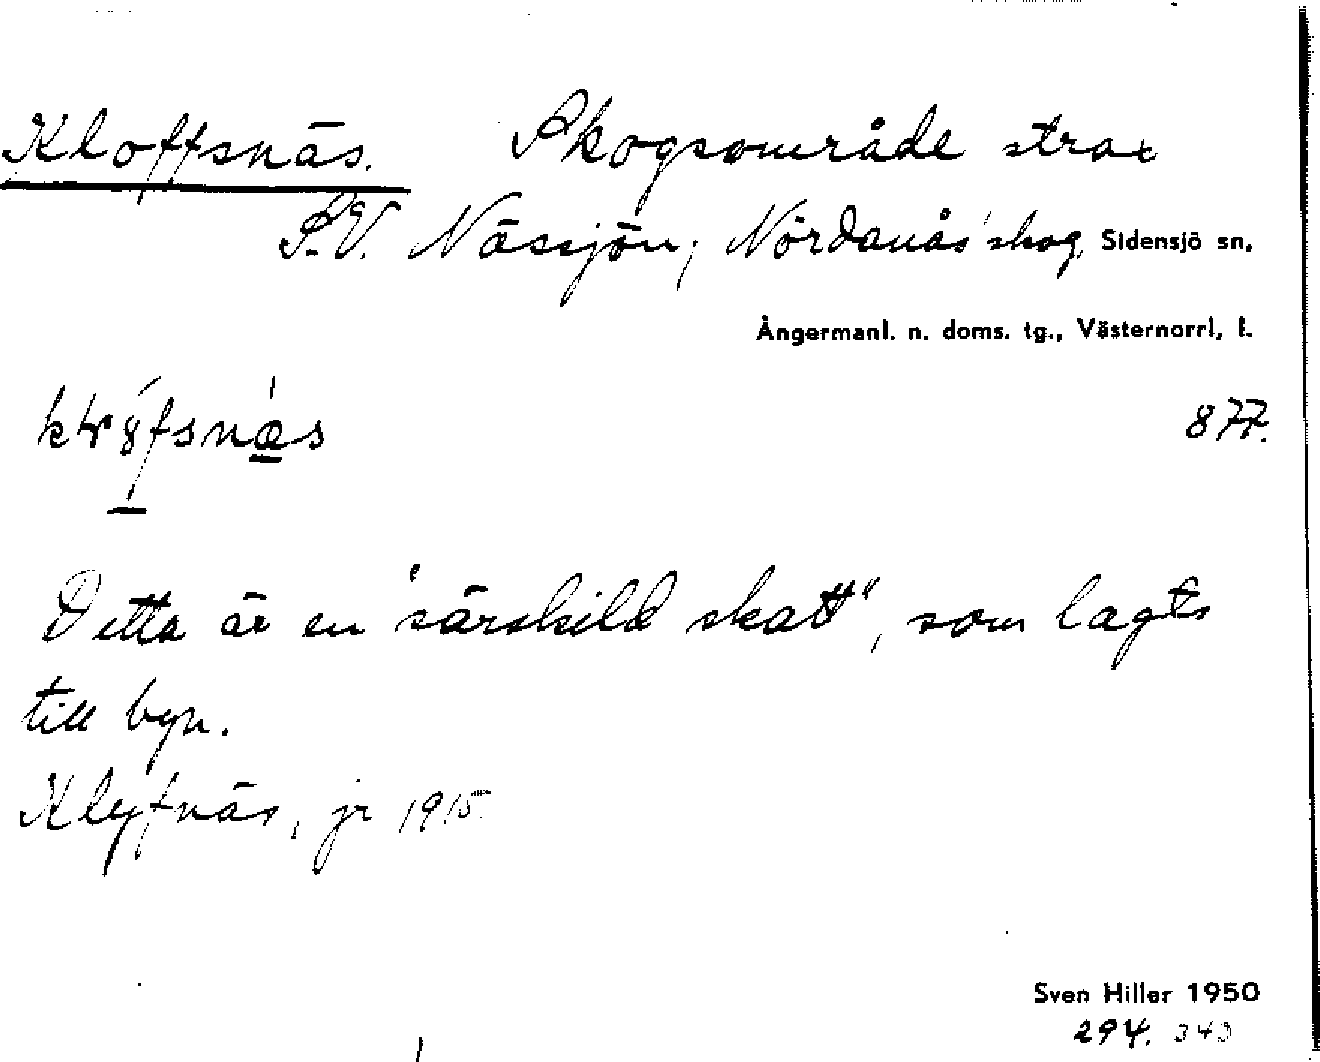 Kloffsnäs. Skogsområde strax
S.V. Nässjön; Nördanås' skog, Sidensjö sn.
Ångermanl. n. doms. tg., Västernorrl. l.
877.
Detta är en "särskild skatt", som lagts
till byn.
Klyfnäs, jr 1915
Sven Hiller 1950
294. 343